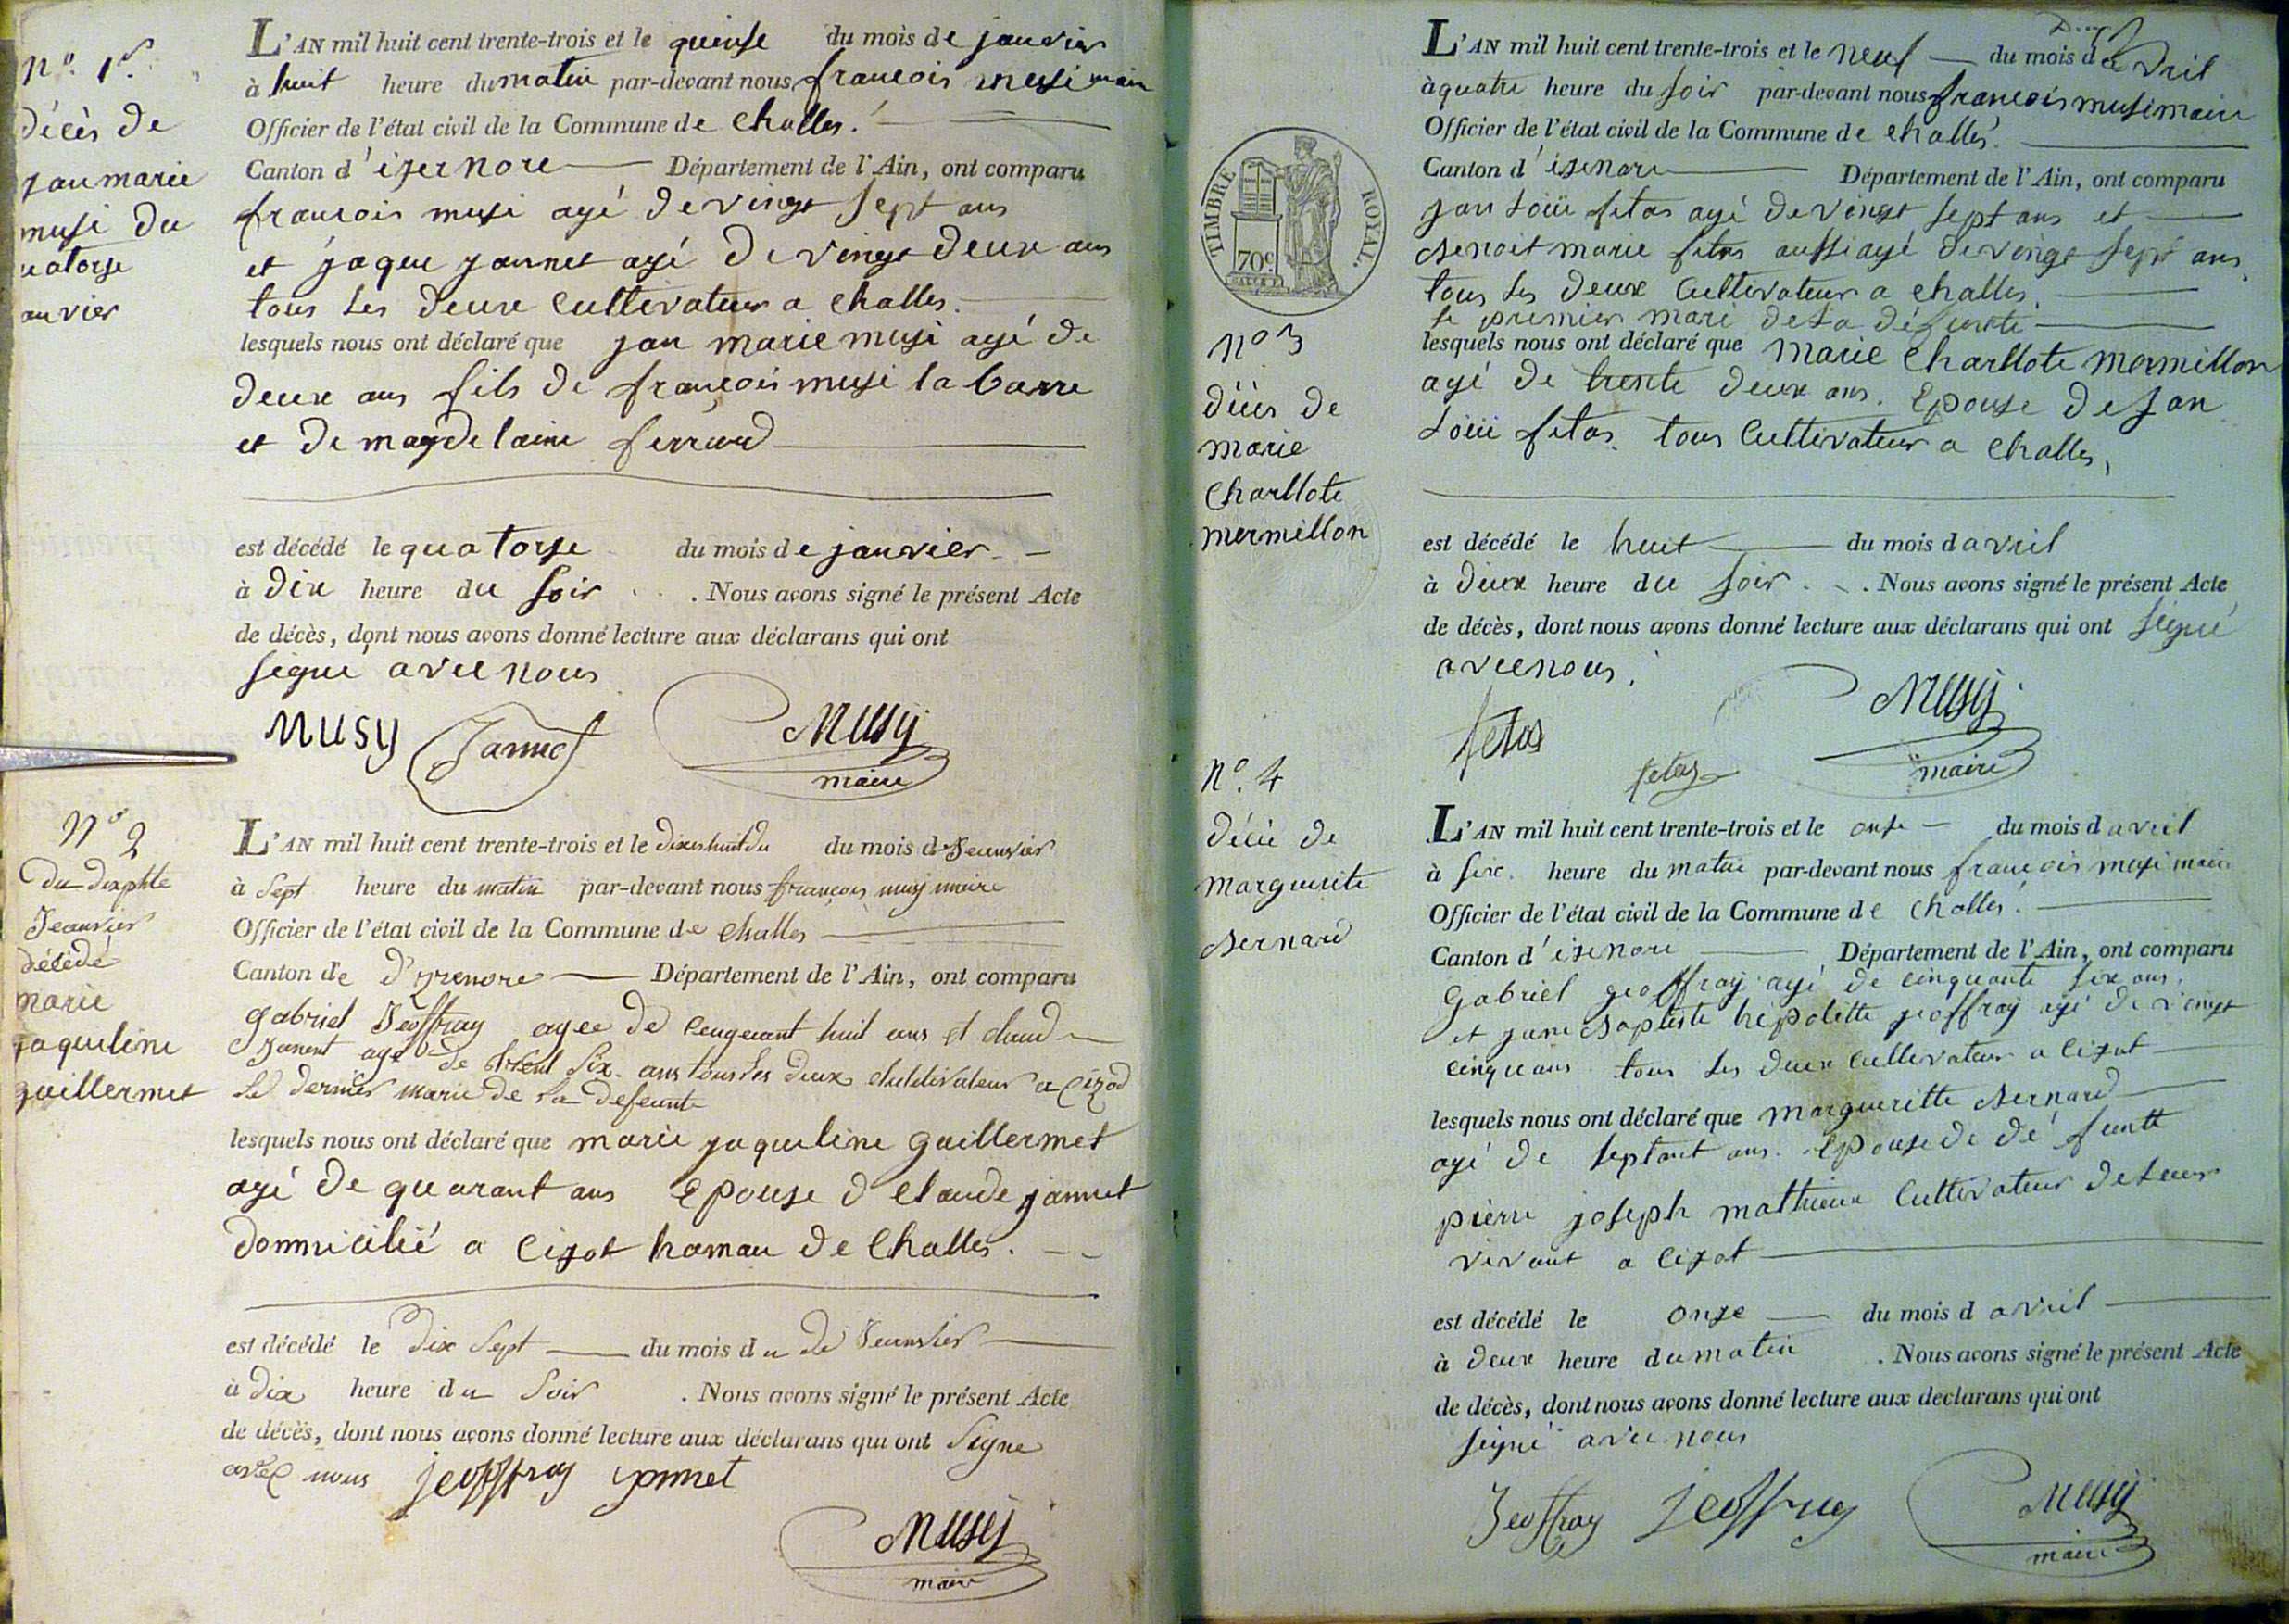 N.º 1.er
décès de
jan marie
musi du
uatorze
anvier
L'AN mil huit cent trente-trois et le quinse du mois de janvier
à huit heure du matin par-devant nous françois musi maire
Officier de l'état civil de la Commune de Challes.
Canton d'izernore Département de l'Ain, ont comparu
françois musi agé de vingt sept ans
et jaque jannet agé de vingt deux ans
tous les deux Cultivateur a challes.
lesquels nous ont déclaré que jan marie musi agé de
deux ans fils de françois musi la barre
et de magdelaine ferrand
est décédé le quatorze du mois de janvier
à dix heure du soir . Nous avons signé le présent Acte
de décès, dont nous avons donné lecture aux déclarans qui ont
signé avec nous
MUSY Jannet Musy
maire
N.º 2
Du
Jeanvier
décédé
marie
jaqueline
guillermet
L'AN mil huit cent trente-trois et le du mois de Jeanvier
à Sept heure du matin par-devant nous françois musy maire
Officier de l'état civil de la Commune de Challes
Canton de Département de l'Ain, ont comparu
Gabriel Jeoffray agee de huit ans et claud
Janent agé de trent six ans tous les deux a cizod
Le dernier marie de la defeunte
lesquels nous ont déclaré que marie jaqueline guillermet
agé de quarant ans Epouse d claude jannet
domicilié a cizot hamau de Challes.
est décédé le dix Sept du mois du de Jeanvier
à dix heure du Soir . Nous avons signé le présent Acte
de décès, dont nous avons donné lecture aux déclarans qui ont Signe
avec nous jeoffray janet
Musy
maire
TIMBRE ROYAL.
70c.
N.º 3
décès de
marie
Charllote
mermillon
L'AN mil huit cent trente-trois et le neuf du mois d avril
à quatre heure du soir par-devant nous françois musi maire
Officier de l'état civil de la Commune de challes.
Canton d'izenore Département de l'Ain, ont comparu
jan Loüi fetas agé de vingt sept ans et
Benoit marie fetas aussi agé de vingt sept ans
tous les deux Cultivateur a challes.
le premier mari de la défunte
lesquels nous ont déclaré que marie Charllote mermillon
agé de trente deux ans. Epouse de jan
Loüi fetas tous Cultivateur a Challes,
est décédé le huit du mois d avril
à deux heure du soir . Nous avons signé le présent Acte
de décès, dont nous avons donné lecture aux déclarans qui ont signé
avec nous.
fetas fetas Musy
maire
N.º 4
décè de
marguerite
Bernard
L'AN mil huit cent trente-trois et le onse du mois d avril
à six heure du matin par-devant nous françois musi maire
Officier de l'état civil de la Commune de Challes.
Canton d'izenore Département de l'Ain, ont comparu
Gabriel geoffray agé de cinquante six ans,
et jane Baptiste hipolitte jeoffray agé de vingt
cinq ans tous les deux cultivateur a cizot
lesquels nous ont déclaré que margueritte Bernard
agé de septant ans. Epouse de défuntt
pierre joseph mathieux Cultivateur de leur
vivant a cizot
est décédé le onze du mois d avril
à deux heure du matin . Nous avons signé le présent Acte
de décès, dont nous avons donné lecture aux declarans qui ont
signé avec nous
Jeoffray jeoffray Musy
maire